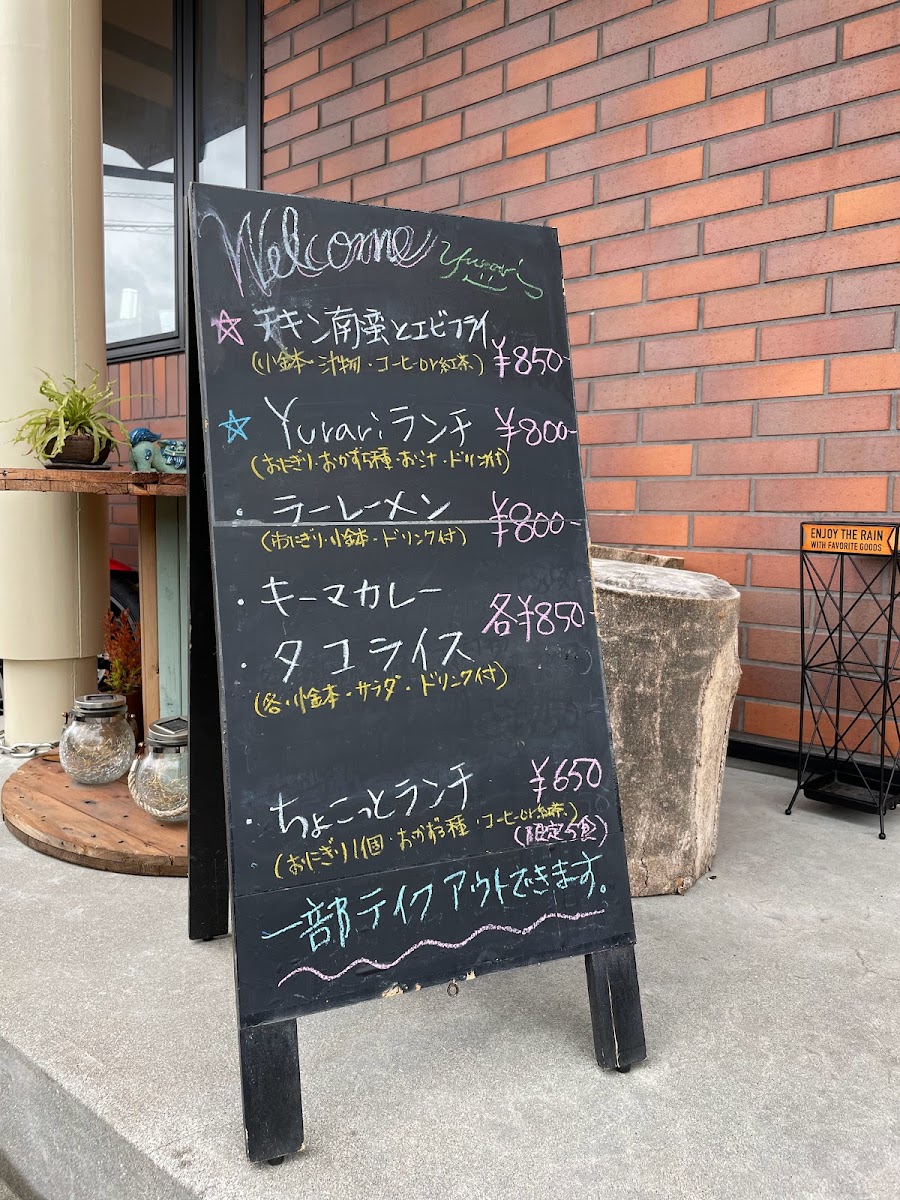 Welcome Yurari's
☆ チキン南蛮とエビフライ ¥850-
(小鉢・汁物・コーヒーor紅茶)
☆ Yurariランチ ¥800-
(おにぎり・おかず5種・お汁・ドリンク付)
・ラーレーメン ¥800-
(おにぎり・小鉢・ドリンク付)
・キーマカレー
各¥850-
・タコライス
(各・小鉢・サラダ・ドリンク付)
・ちょこっとランチ ¥650
(おにぎり1個・おかず3種・コーヒーor紅茶)
(限定5食)
一部テイクアウトできます。
ENJOY THE RAIN
WITH FAVORITE GOODS